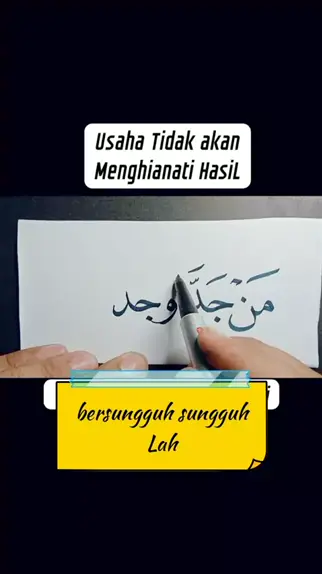 Usaha Tidak akan
Menghianati HasiL
مَنْ جَدَّ وجد
bersungguh sungguh
Lah